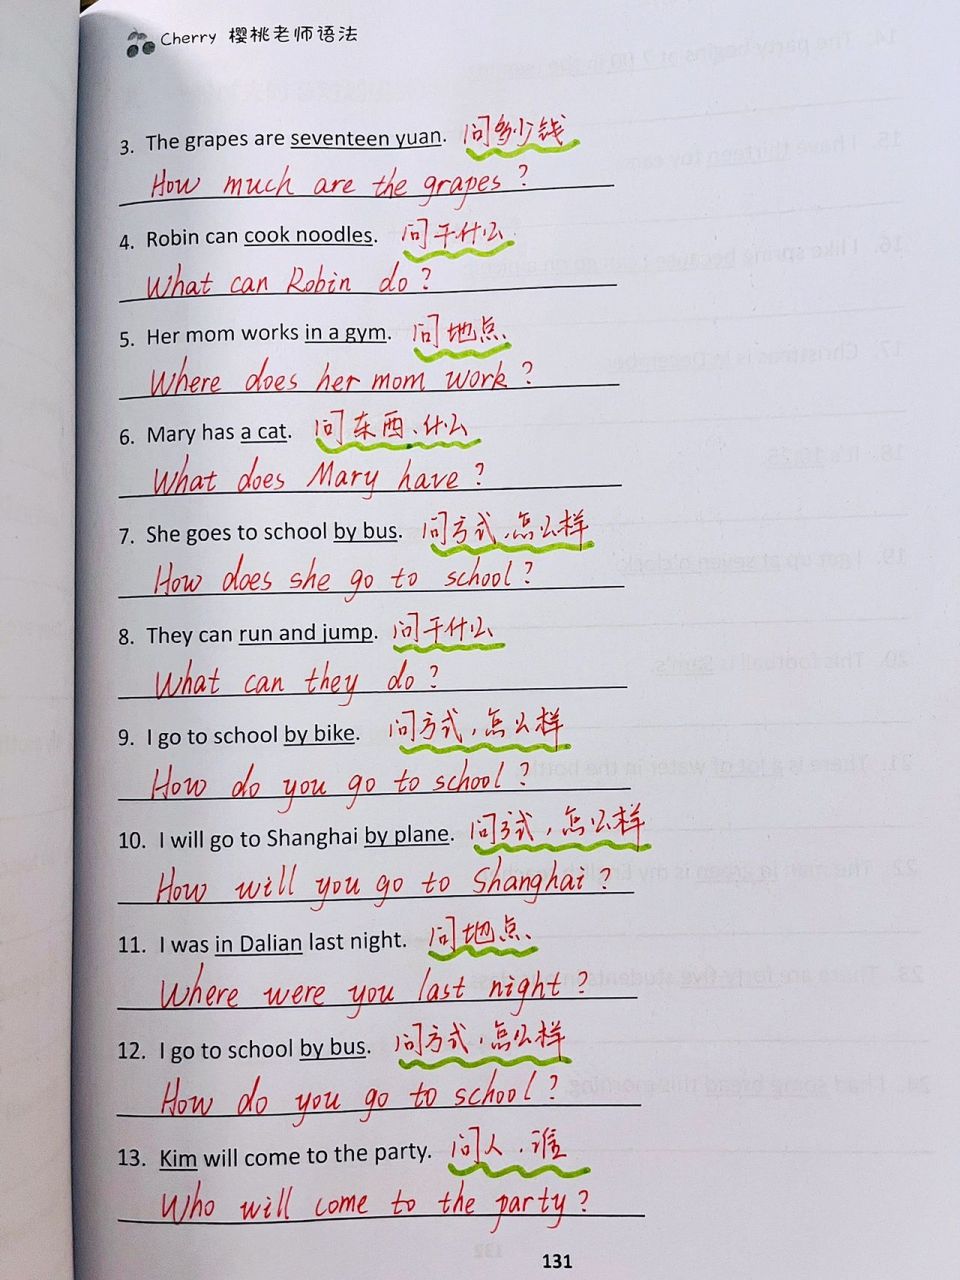 Cherry 樱桃老师语法
3. The grapes are seventeen yuan. 问多少钱
How much are the grapes ?
4. Robin can cook noodles. 问干什么
What can Robin do ?
5. Her mom works in a gym. 问地点
Where does her mom work ?
6. Mary has a cat. 问东西、什么
What does Mary have ?
7. She goes to school by bus. 问方式,怎么样
How does she go to school ?
8. They can run and jump. 问干什么
What can they do ?
9. I go to school by bike. 问方式,怎么样
How do you go to school ?
10. I will go to Shanghai by plane. 问方式,怎么样
How will you go to Shanghai ?
11. I was in Dalian last night. 问地点
Where were you last night ?
12. I go to school by bus. 问方式,怎么样
How do you go to school ?
13. Kim will come to the party. 问人,谁
Who will come to the party ?
131